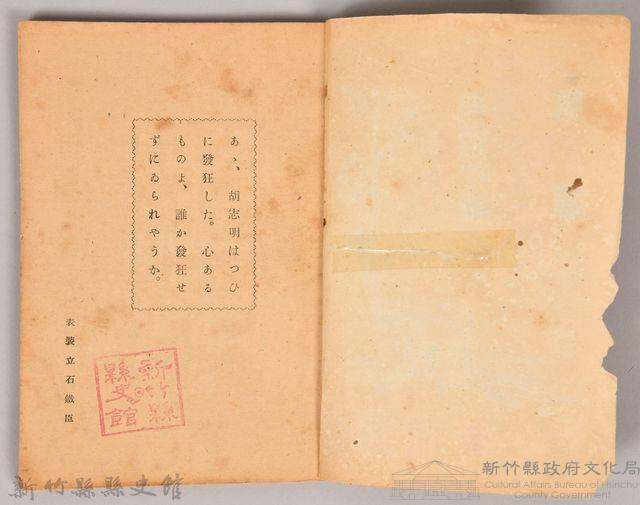 あゝ、胡志明はつひ
に發狂した。心ある
ものよ、誰か發狂せ
ずにゐられやうか。
表裝立石鐵臣
新竹縣
縣史館
新竹縣縣史館
新竹縣政府文化局
Cultural Affairs Bureau of Hsinchu
County Government